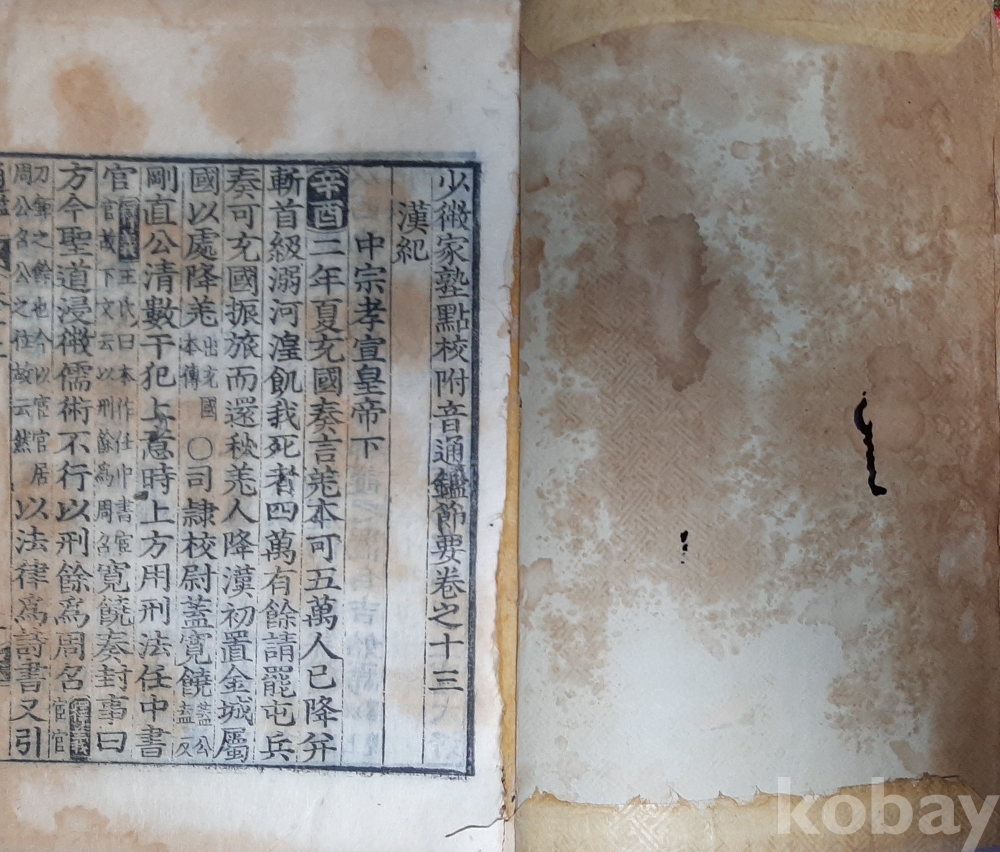 少微家塾點校附音通鑑節要卷之十三
漢紀
中宗孝宣皇帝下
辛酉二年夏充國奏言羌本可五萬人已降幷
斬首級溺河湟飢餓死者四萬有餘請罷屯兵
奏可充國振旅而還秋羌人降漢初置金城屬
國以處降羌出充國本傳○司隷校尉蓋寬饒蓋公
剛直公清數干犯上意時上方用刑法任中書
官釋義王氏曰本作任中書宦官故下文云以刑餘爲周召寬饒奏封事曰
方今聖道浸微儒術不行以刑餘爲周召釋義宦官
刀鋸之餘也今以宦官居周公召公之位故云然以法律爲詩書又引
通鑑
kobay